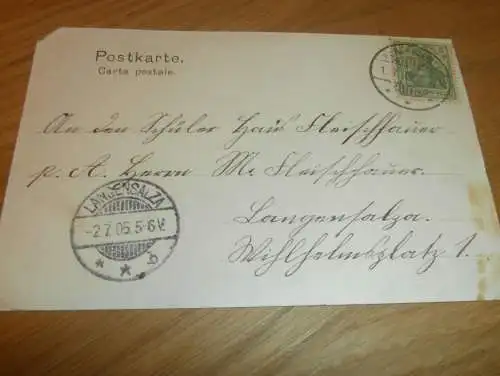 Postkarte.
Carte postale.
An den Schüler Hans Fleischhauer
p. A. Herrn M. Fleischhauer.
Langensalza.
Wilhelmsplatz 1.
LANGENSALZA
-2.7.05.5-6V.
* * b